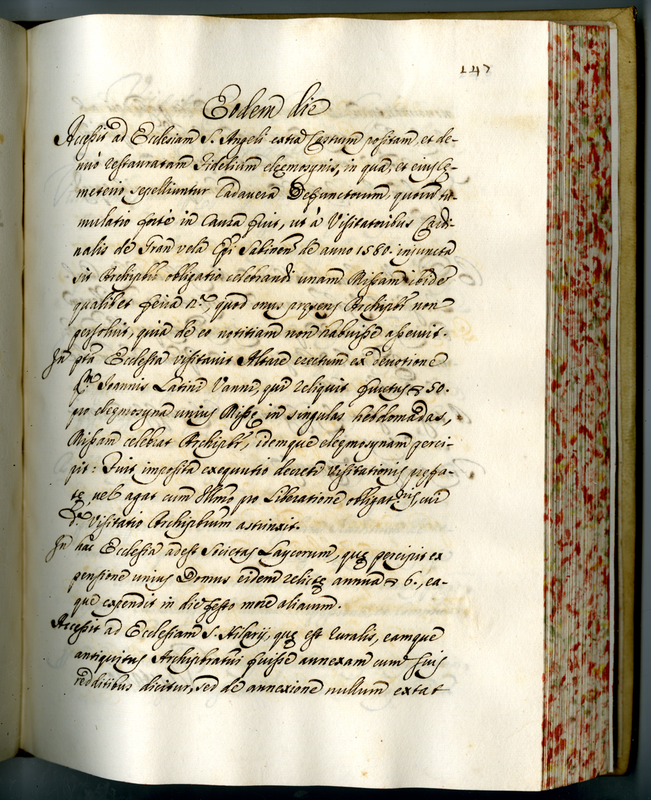 147
Eodem die
Accessit ad Ecclesiam S. Angeli extra Castrum positam, et de-
nuo restauratam Fidelium eleemosynis, in qua, et eius Ce-
meterio sepelliuntur Cadavera Defunctorum, quorum tu-
mulatio forte in causa fuit, ut à Visitatoribus Cardi-
nalis de Gran vela Epi Sabinen de anno 1580. injuncta
sit Archipbro obligatio celebrandi unam Missam ibidem
qualibet feria 2.a, quod onus Archipbr non
persolvit, quia de eo notitiam non habuisse asseruit.
In pta Ecclesia visitavit Altare erectum ex devotione
qm Joannis Latini Vanni, qui reliquit fructus 50.
pro eleemosyna unius Missę in singulas hebdomadas,
Missam celebrat Archipbr, idemque eleemosynam perci-
pit: Fuit imposita exequutio decreti Visitationis pręfa-
tę, vel agat cum Illmo pro liberatione obligatonis, cui
d.a Visitatio Archipbrum astrinxit.
In hac Ecclesia adest Societas Laycorum, quę percipit ex
pensione unius Domus eidem relictę annua 6., ea-
que expendit in die festo more aliarum.
Accessit ad Ecclesiam S. Hilarij, quę est ruralis, eamque
antiquitus Archipbratui fuisse annexam cum suis
redditibus dicitur, sed de annexione nullum extat